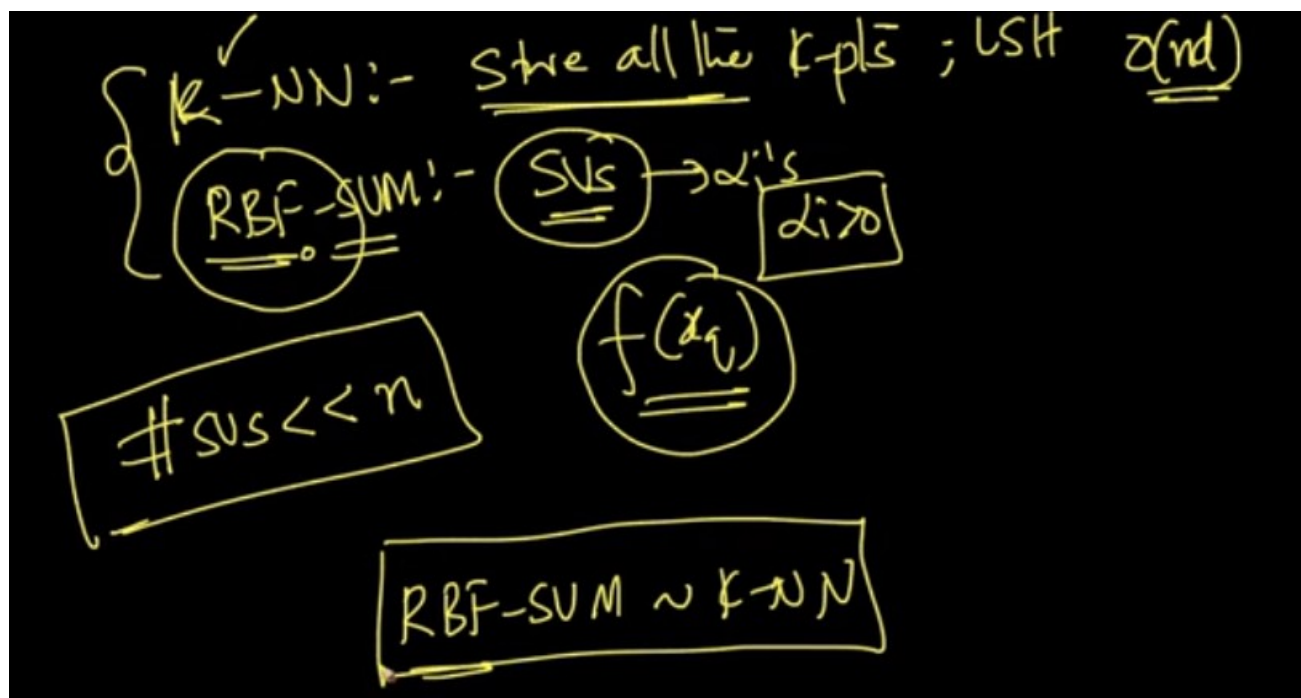 K-NN:- Store all the k-pts ; LSH O(nd)
RBF-SVM:- SVs → αi's
αi>0
f(xq)
#SVs<<n
RBF-SVM ~ K-NN